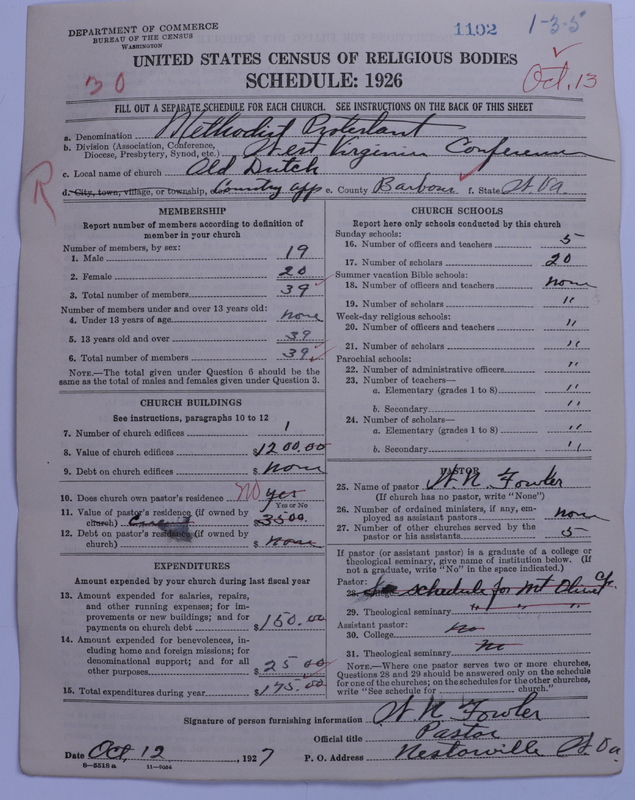 DEPARTMENT OF COMMERCE
BUREAU OF THE CENSUS
WASHINGTON
1102
1-3-5
UNITED STATES CENSUS OF RELIGIOUS BODIES
SCHEDULE: 1926
30
Oct. 13
FILL OUT A SEPARATE SCHEDULE FOR EACH CHURCH. SEE INSTRUCTIONS ON THE BACK OF THIS SHEET
a. Denomination Methodist Protestant
b. Division (Association, Conference, Diocese, Presbytery, Synod, etc.) West Virginia Conference
c. Local name of church Old Dutch
R
d. City, town, village, or township, Country app e. County Barbour f. State W. Va.
MEMBERSHIP
Report number of members according to definition of
member in your church
Number of members, by sex:
1. Male 19
2. Female 20
3. Total number of members 39
Number of members under and over 13 years old:
4. Under 13 years of age none
5. 13 years old and over 39
6. Total number of members 39
NOTE.—The total given under Question 6 should be
same as the total of males and females given under Question 3.
CHURCH BUILDINGS
See instructions, paragraphs 10 to 12
7. Number of church edifices 1
8. Value of church edifices $1200.00
9. Debt on church edifices $ None
10. Does church own pastor's residence no yes
Yes or No
11. Value of pastor's residence (if owned by
church) $3500.
12. Debt on pastor's residence (if owned by
church) $ none
EXPENDITURES
Amount expended by your church during last fiscal year
13. Amount expended for salaries, repairs,
and other running expenses; for im-
provements or new buildings; and for
payments on church debt $150.00
14. Amount expended for benevolences, in-
cluding home and foreign missions; for
denominational support; and for all
other purposes $25.00
15. Total expenditures during year $175.00
CHURCH SCHOOLS
Report here only schools conducted by this church
Sunday schools:
16. Number of officers and teachers 5
17. Number of scholars 20
Summer vacation Bible schools:
18. Number of officers and teachers none
19. Number of scholars "
Week-day religious schools:
20. Number of officers and teachers "
21. Number of scholars "
Parochial schools:
22. Number of administrative officers "
23. Number of teachers—
a. Elementary (grades 1 to 8) "
b. Secondary "
24. Number of scholars—
a. Elementary (grades 1 to 8) "
b. Secondary "
PASTOR
25. Name of pastor W. N. Fowler
(If church has no pastor, write "None")
26. Number of ordained ministers, if any, em-
ployed as assistant pastors none
27. Number of other churches served by the
pastor or his assistants 5
If pastor (or assistant pastor) is a graduate of a college or
theological seminary, give name of institution below. (If
not a graduate, write "No" in the space indicated.)
Pastor:
28. College schedule for Mt Olive
29. Theological seminary " " "
Assistant pastor:
30. College no
31. Theological seminary no
NOTE.—Where one pastor serves two or more churches,
Questions 28 and 29 should be answered only on the schedule
for one of the churches; on the schedules for the other churches,
write "See schedule for church."
Signature of person furnishing information W. N. Fowler
Official title Pastor
Date Oct, 12, 1927
P. O. Address Nestorville W. Va.
8-5518a 11-9054